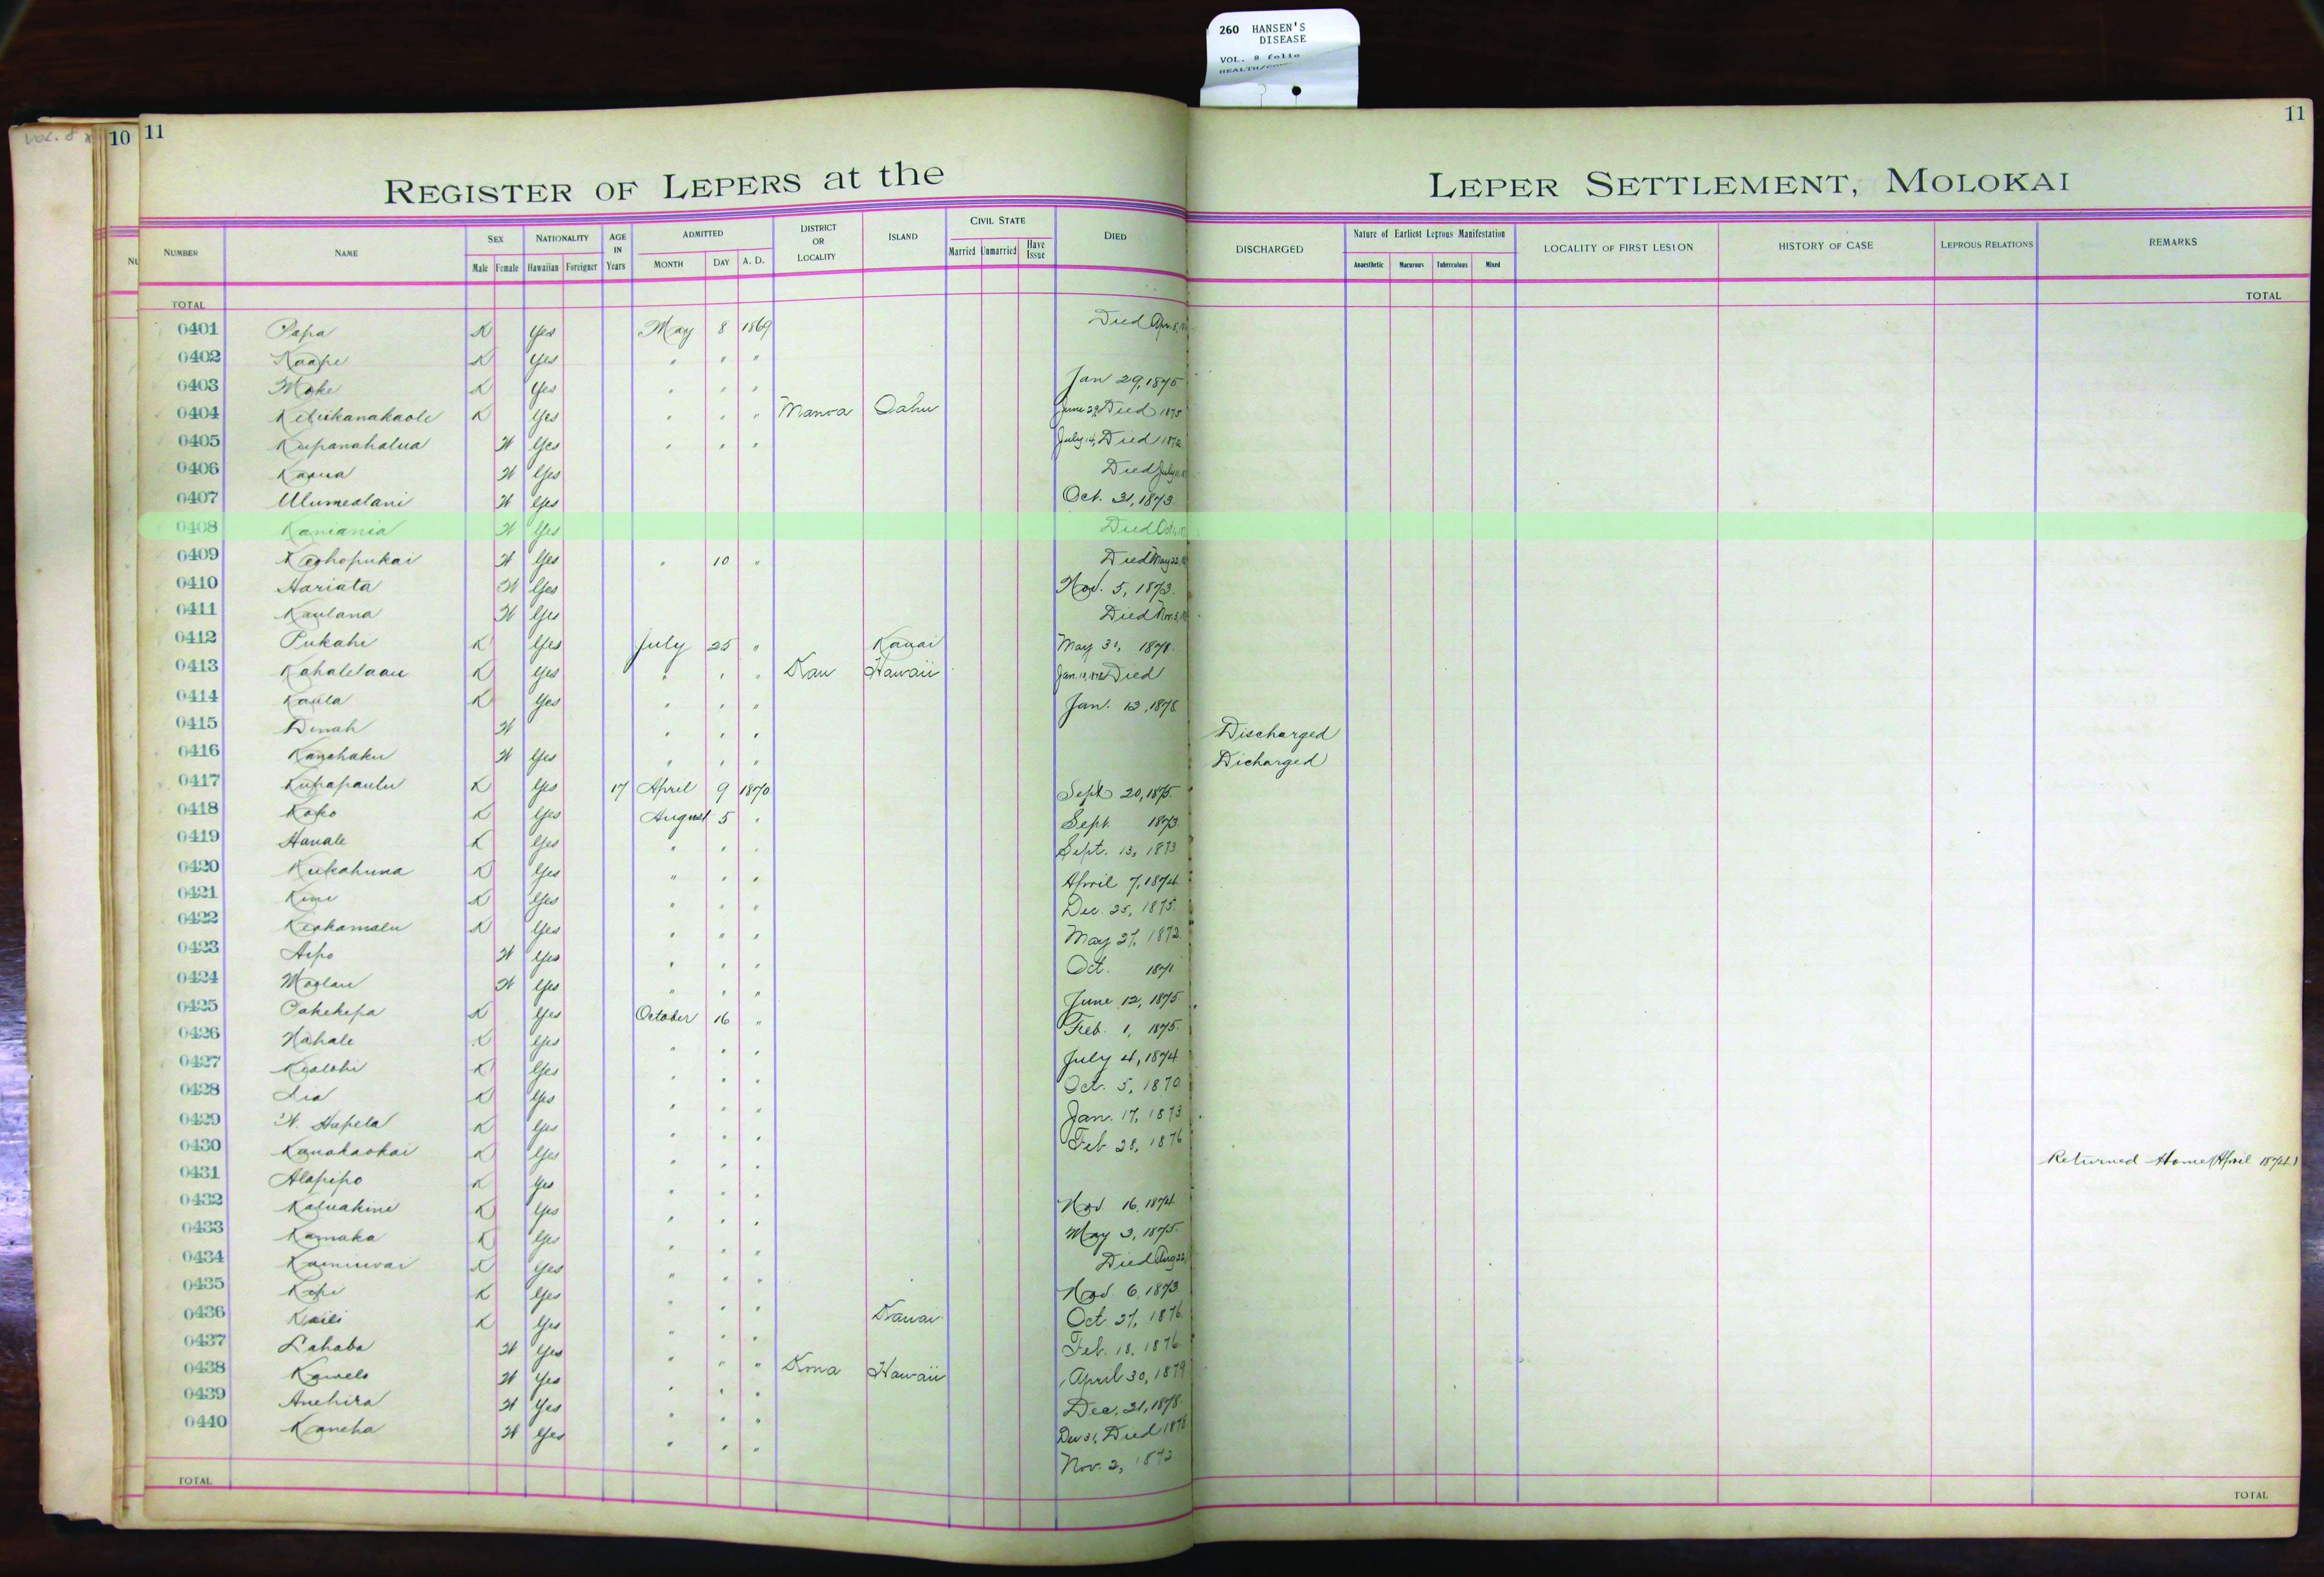 260 HANSEN'S
DISEASE
VOL. 8 folio
VOL. 8
10 11
11
REGISTER OF LEPERS at the LEPER SETTLEMENT, MOLOKAI
NUMBER NAME SEX Male Female NATIONALITY Hawaiian Foreigner AGE IN Years ADMITTED MONTH DAY A. D. DISTRICT OR LOCALITY ISLAND CIVIL STATE Married Unmarried Have Issue DIED DISCHARGED Nature of Earliest Leprous Manifestation Anaesthetic Macurous Tuberculous Mixed LOCALITY OF FIRST LESION HISTORY OF CASE LEPROUS RELATIONS REMARKS
TOTAL TOTAL
0401 Papa K Yes May 8 1869 Died Apr. 8,
0402 Kaape K Yes " " "
0403 Moke K Yes " " " Jan 29, 1875
0404 Keliikanakaole K Yes " " " Manoa Oahu June 29, Died 1875
0405 Kupanahalua W Yes " " " July 14, Died 1872
0406 W Yes Died July
0407 Ulumealani W Yes Oct. 31, 1873.
0408 Kamania W Yes Died Oct.
0409 Keohopukai W Yes " 10 " Died May 22,
0410 Hariata W Yes Nov. 5, 1873.
0411 Kaulana W Yes Died Nov. 3,
0412 Pukahi K Yes July 25 " Kauai May 31, 1871.
0413 Kahalelaau K Yes " " " Kau Hawaii Jan. Died
0414 Kaula K Yes " " " Jan. 12, 1878.
0415 Dinah W " " " Discharged
0416 Kanohaku W Yes " " " Dicharged
0417 Kupapaulu K Yes 17 April 9 1870 Sept 20, 1875.
0418 Koko K Yes August 5 " Sept. 1873
0419 Hanale K Yes " " " Sept. 13, 1873
0420 Kukahuna K Yes " " " April 7, 1874
0421 Kini K Yes " " " Dec. 25, 1875.
0422 Keohamalu K Yes " " " May 27, 1872
0423 Aipo W Yes " " " Oct. 1871
0424 Moolau W Yes " " " June 12, 1875
0425 Pahekepa K Yes October 16 " Feb. 1, 1875.
0426 Nahale K Yes " " " July 4, 1874
0427 Kealohi K Yes " " " Oct. 5, 1870
0428 Lia K Yes " " " Jan. 17, 1873
0429 W. Hapela K Yes " " " Feb 28, 1876
0430 Kanakaokai K Yes " " " Returned Home (April 1874.)
0431 Alapipo K Yes " " " Nov 16, 1874
0432 Kaluakini K Yes " " " May 3, 1875.
0433 Kamaka K Yes " " " Died Aug 22,
0434 K Yes " " " Nov. 6, 1873
0435 Kopi K Yes " " " Oct. 27, 1876
0436 Kaili K Yes " " " Kauai Feb. 18, 1876
0437 Lahaba W Yes " " " April 30, 1879
0438 Kawelo W Yes " " " Kona Hawaii Dec. 31, 1878.
0439 Anehira W Yes " " " Dec 31, Died 1878
0440 Kaneha W Yes " " " Nov. 2, 1872
TOTAL TOTAL